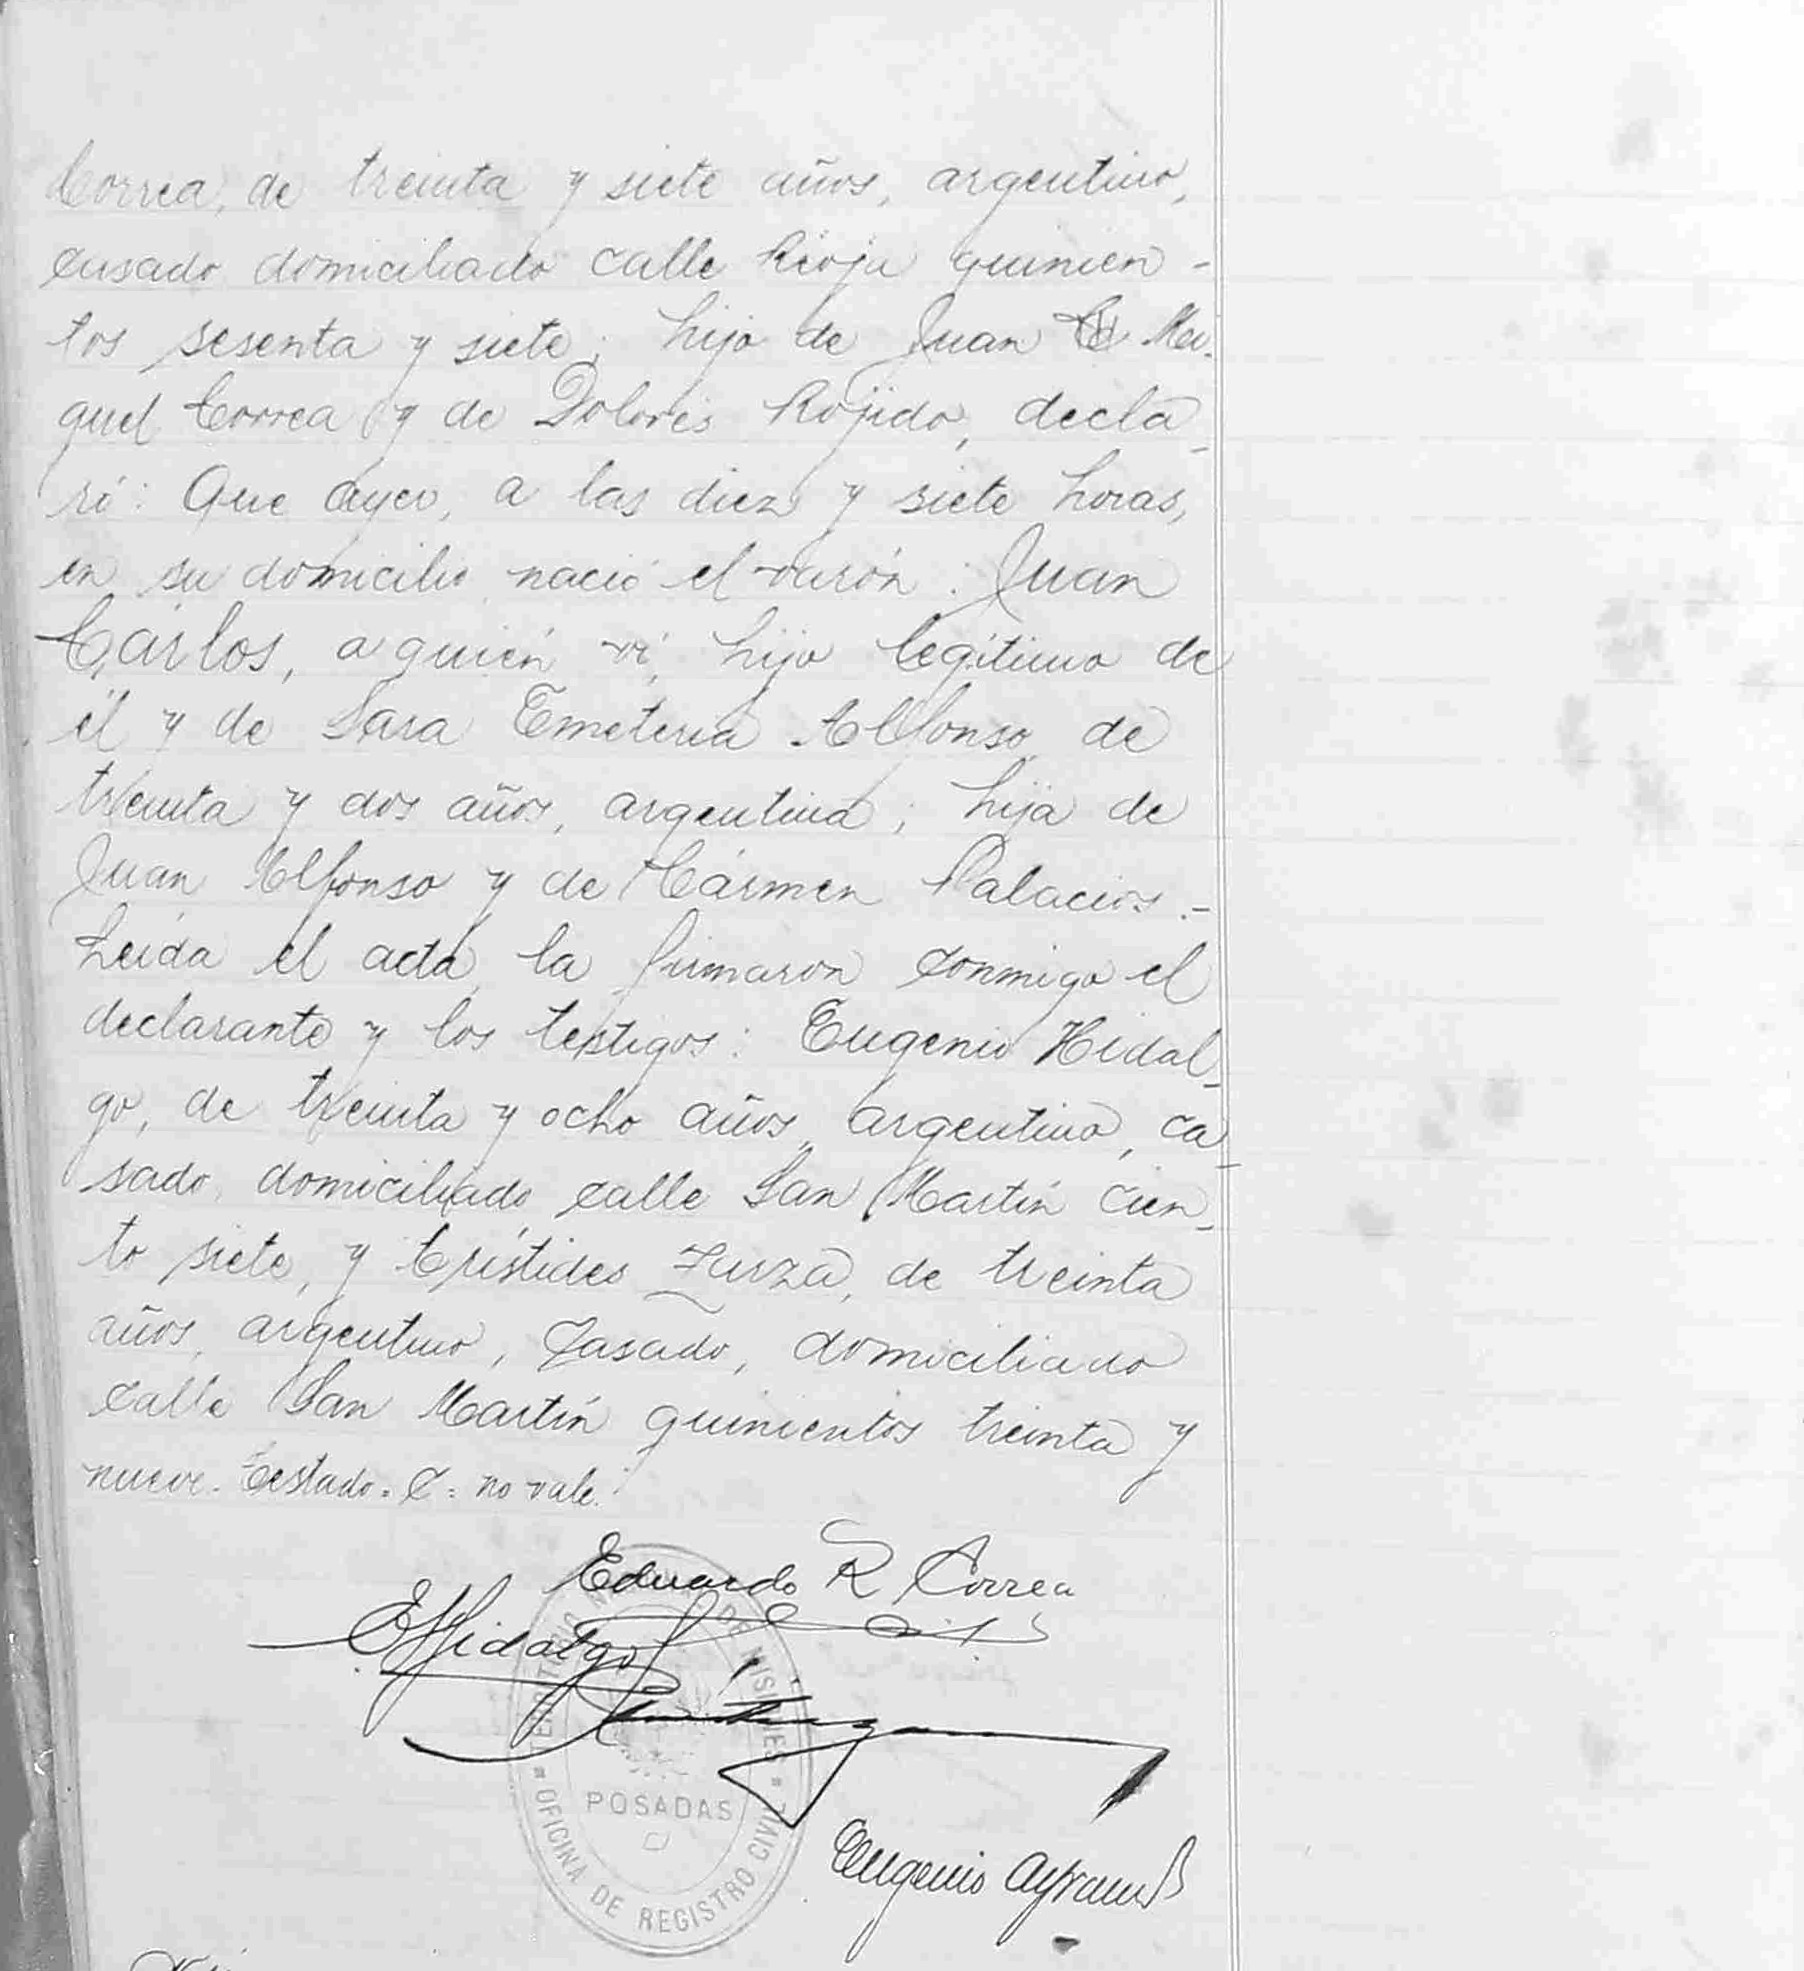 Correa, de treinta y siete años, argentino,
casado domiciliado calle Rioja quinien-
tos sesenta y siete; hijo de Juan C Mi-
guel Correa y de Dolores Rojido, decla-
ró: Que ayer, a las diez y siete horas,
en su domicilio nació el varón: Juan
Cárlos, a quién ví, hijo legítimo de
él y de Sara Emeteria Alfonso, de
treinta y dos años, argentina; hija de
Juan Alfonso y de Cármen Palacios.-
Leída el acta, la firmaron conmigo el
declarante y los testigos: Eugenio Hidal-
go, de treinta y ocho años, argentino, ca-
sado, domiciliado calle San Martín cien-
to siete, y Arístides Zarza, de treinta
años, argentino, casado, domiciliado
calle San Martín quinientos treinta y
nueve. Testado = C = no vale.
Eduardo R Correa
EHidalgo
TERRITORIO DE MISIONES
POSADAS
OFICINA DE REGISTRO CIVIL
Eugenio